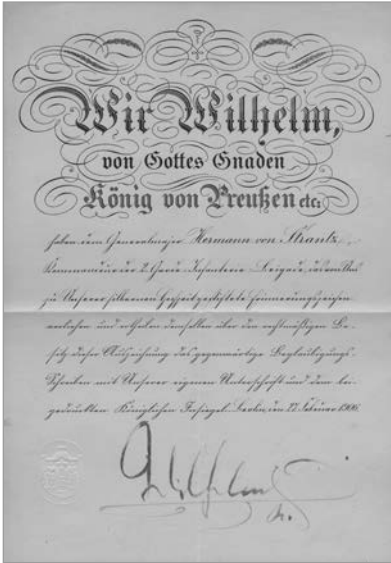 Wir Wilhelm,
von Gottes Gnaden
König von Preußen etc:
haben dem Generalmajor Hermann von Strantz,
Kommandeur der 2. Garde Infanterie Brigade, das von Uns
zu Unserer silbernen Hochzeit gestiftete Erinnerungszeichen
verliehen und ertheilen demselben über den rechtmäßigen Be-
sitz dieser Auszeichnung das gegenwärtige Beglaubigungs-
Schreiben mit Unserer eigenen Unterschrift und dem bei-
gedruckten Königlichen Insiegel. Berlin, den 27. Februar 1906
Wilhelm
R.